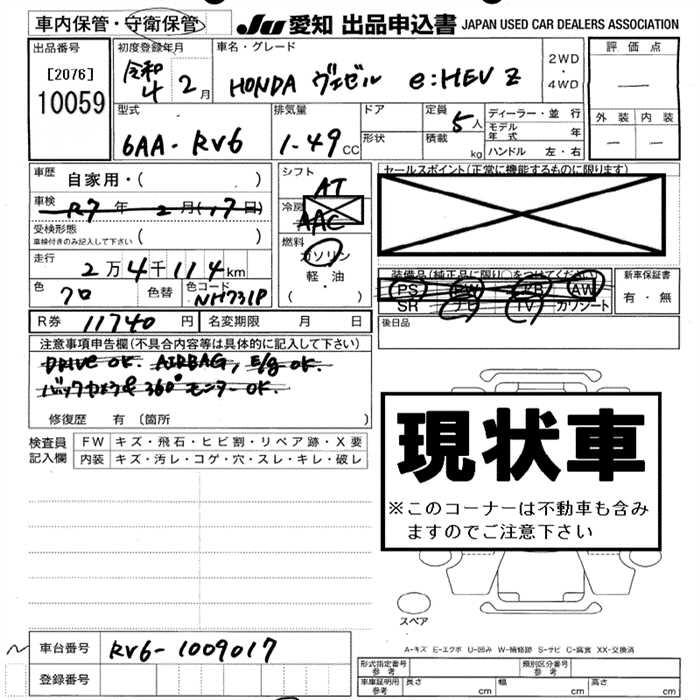 車内保管・守衛保管
JU 愛知 出品申込書 JAPAN USED CAR DEALERS ASSOCIATION
出品番号
[2076]
10059
初度登録年月
令和
4 2月
車名・グレード
HONDA ヴェゼル e:HEV Z
2WD
・
4WD
評価点
—
外装 内装
— —
型式
6AA-RV6
排気量
1.49CC
ドア
形状
定員
5人
積載 kg
ディーラー・並行
モデル
年式 年
ハンドル 左・右
車歴
自家用・( )
車検
R7年2月(17日)
受検形態
車検付きのみ記入して下さい ( )
走行
2万4千114km
色
クロ
色替
色コード
NH731P
シフト
AT
冷房
AAC
燃料
ガソリン
軽・油
( ・ )
セールスポイント(正常に機能するものに限ります)
装備品(純正品に限り○をつけてください)
PS PW AW
SR TV カワシート
新車保証書
有・無
後日品
R券 11740円
名変期限 月 日
注意事項申告欄(不具合内容等は具体的に記入して下さい)
DRIVE OK. AIRBAG, E/g OK.
バックカメラ& 360°モニターOK.
修復歴 有 〔箇所 〕
検査員
記入欄
FW キズ・飛石・ヒビ割・リペア跡・X要
内装 キズ・汚レ・コゲ・穴・スレ・キレ・破レ
現状車
※このコーナーは不動車も含み
ますのでご注意下さい
スペア
A-キズ E-エクボ U-凹み W-補修跡 S-サビ C-腐食 XX-交換済
車台番号 RV6-1009017
登録番号
形式指定番号
参考
類別区分番号
参考
車庫証明用
参考
長さ cm
幅 cm
高さ cm